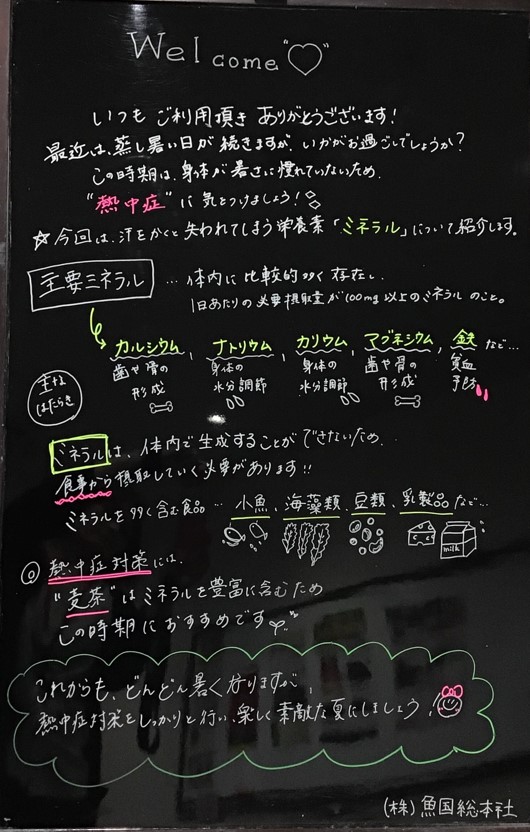 Welcome "♡"
いつも ご利用頂き ありがとうございます!
最近は、蒸し暑い日が 続きますが、いかがお過ごしでしょうか?
この時期は、身体が 暑さに慣れていないため、
"熱中症"に 気をつけましょう!
☆今回は、汗をかくと失われてしまう栄養素「ミネラル」について紹介します。
主要ミネラル … 体内に 比較的多く 存在し、
1日あたりの必要摂取量が100mg以上のミネラルのこと。
カルシウム、ナトリウム、カリウム、マグネシウム、鉄 など…
主な はたらき
歯や骨の 形成
身体の 水分調節
身体の 水分調節
歯や骨の 形成
貧血 予防
ミネラルは、体内で生成することができないため、
食事から摂取していく必要があります!!
ミネラルを多く含む食品 … 小魚、海藻類、豆類、乳製品など…
milk
◎ 熱中症対策には、
"麦茶"はミネラルを豊富に含むため
この時期におすすめです
これからも、どんどん暑くなりますが、
熱中症対策をしっかりと行い、楽しく素敵な夏にしましょう!
(株)魚国総本社